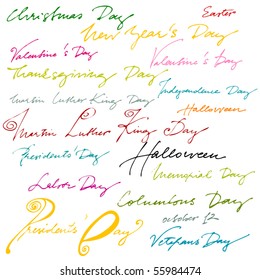 Christmas Day
Easter
New Year's Day
Valentine's Day
Valentine's Day
Thanksgiving Day
Independence Day
Martin Luther King Day
Halloween
Martin Luther King Day
Presidents' Day
Halloween
Memorial Day
Labor Day
Columbus Day
october 12
Presidents' Day
Veterans Day
shutterstock.com · 55984474